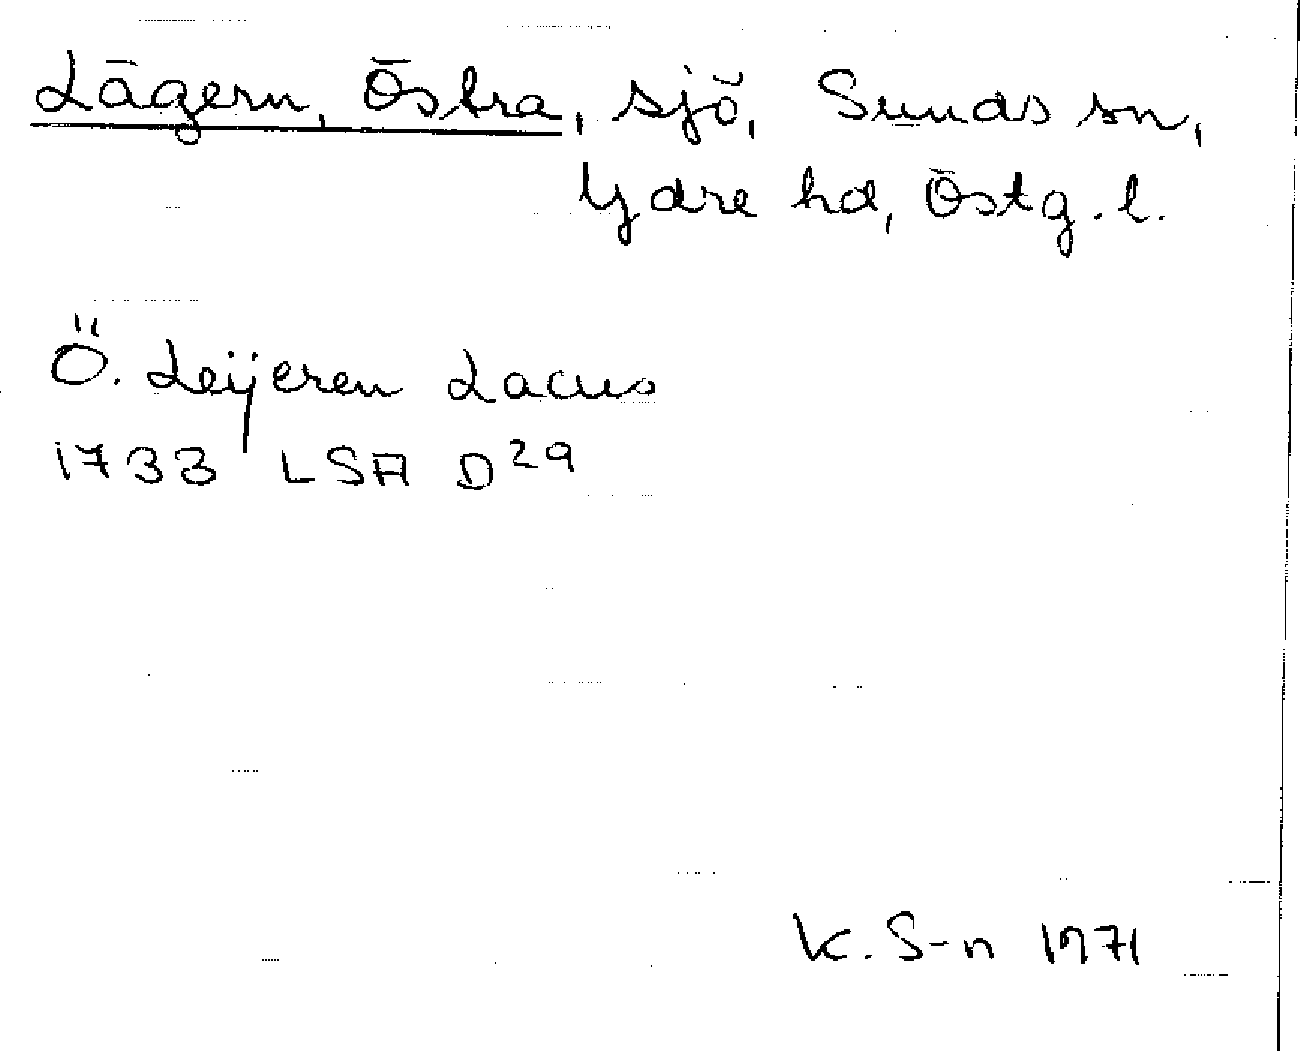 Lägern, Östra, sjö, Sunds sn,
Ydre hd, Östg. l.
Ö. Leijeren Lacus
1733 LSA D29
K. S-n 1971